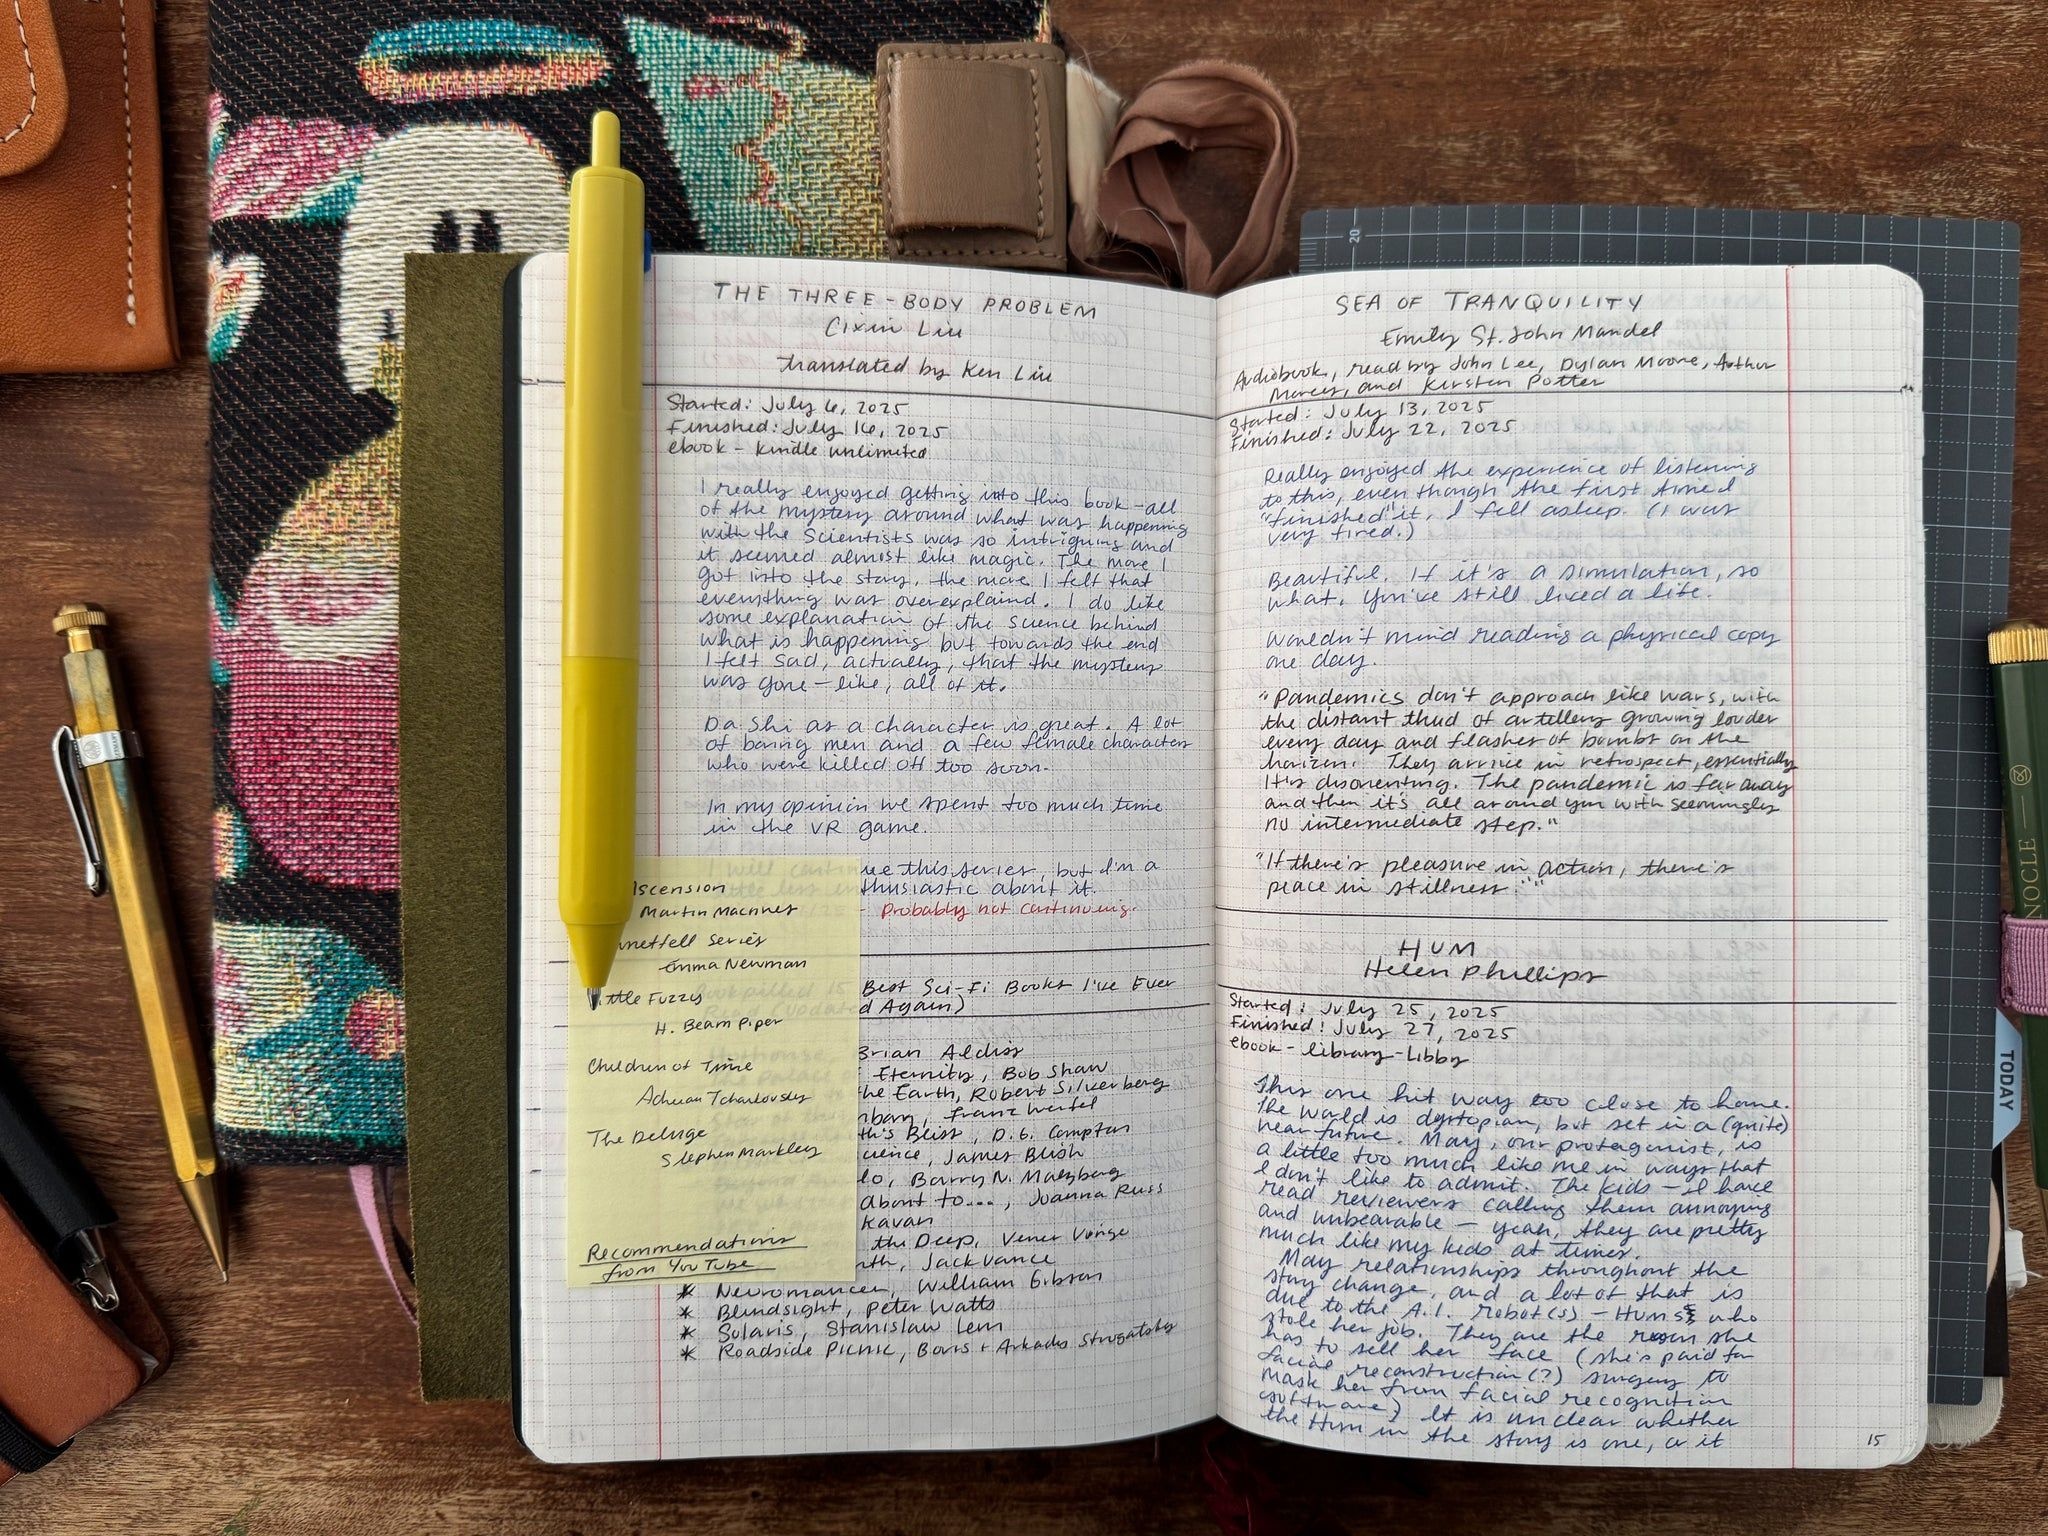 THE THREE-BODY PROBLEM
Cixin Liu
Translated by Ken Liu
Started: July 6, 2025
Finished: July 16, 2025
ebook - Kindle unlimited
I really enjoyed getting into this book - all
of the mystery around what was happening
with the Scientists was so intriguing and
it seemed almost like magic. The more I
got into the story, the more I felt that
everything was overexplaind. I do like
some explanation of the science behind
what is happening but towards the end
I felt sad, actually, that the mystery
was gone - like, all of it.
Da Shi as a character is great. A lot
of boring men and a few female characters
who were killed off too soon.
In my opinion we spent too much time
in the VR game.
I will continue this series, but I'm a
little less enthusiastic about it.
- Probably not continuing.
Best Sci-Fi Books I've Ever
d Again)
Brian Aldiss
Eternity, Bob Shaw
the Earth, Robert Silverberg
Franz Werfel
th's Blist, D.G. Compton
ience, James Blish
lo, Barry N. Malzberg
about to..., Joanna Russ
Kavan
the Deep, Vener Vinge
nth, Jack Vance
* Neuromancer, William Gibson
* Blindsight, Peter Watts
* Solaris, Stanislaw Lem
* Roadside Picnic, Boris + Arkady Strugatsky
scension
Martin MacInnes
netfell Series
Emma Newman
ittle Fuzzy
H. Beam Piper
Children of Time
Adrian Tchaikovsky
The Deluge
Stephen Markley
Recommendations
from YouTube
SEA OF TRANQUILITY
Emily St. John Mandel
Audiobook, read by John Lee, Dylan Moore, Arthur
Morey, and Kirsten Potter
Started: July 13, 2025
Finished: July 22, 2025
Really enjoyed the experience of listening
to this, even though the first time I
"finished" it, I fell asleep. (I was
very tired.)
Beautiful. If it's a simulation, so
what. You've still lived a life.
Wouldn't mind reading a physical copy
one day.
"Pandemics don't approach like wars, with
the distant thud of artillery growing louder
every day and flashes of bombs on the
horizon. They arrive in retrospect, essentially.
It's disorienting. The pandemic is far away
and then it's all around you with seemingly
no intermediate step."
"If there's pleasure in action, there's
peace in stillness."
HUM
Helen Phillips
Started: July 25, 2025
Finished: July 27, 2025
ebook - library - Libby
This one hit way too close to home.
The world is dystopian, but set in a (quite)
near future. May, our protagonist, is
a little too much like me in ways that
I don't like to admit. The kids - I have
read reviewers calling them annoying
and unbearable - yeah, they are pretty
much like my kids at times.
May relationships throughout the
story change, and a lot of that is
due to the A.I. robot(s) - Hums who
stole her job. They are the reason she
has to sell her face (she's paid for
facial reconstruction(?) surgery to
mask her from facial recognition
software) It is unclear whether
the Hum in the story is one, or it
15
TODAY
NOCLE
20